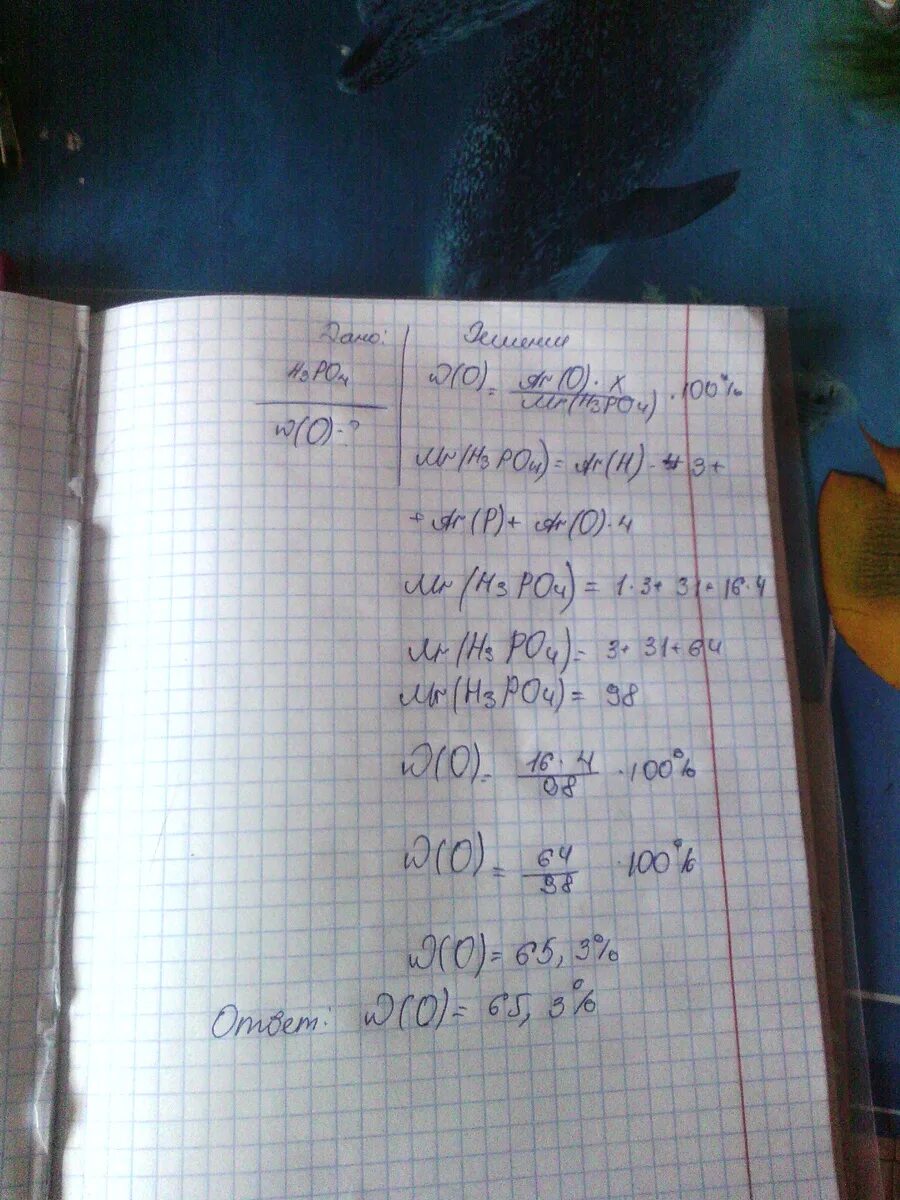 Дано:
H₃PO₄
W(O)-?
Решение
W(O) = Ar(O)·x / Mr(H₃PO₄) ·100%
Mr(H₃PO₄) = Ar(H)· 3+
+ Ar(P) + Ar(O)·4
Mr(H₃PO₄) = 1·3+31+16·4
Mr(H₃PO₄) = 3+31+64
Mr(H₃PO₄) = 98
W(O) = 16·4 / 98 ·100%
W(O) = 64 / 98 ·100%
W(O) = 65,3%
Ответ: W(O) = 65,3%